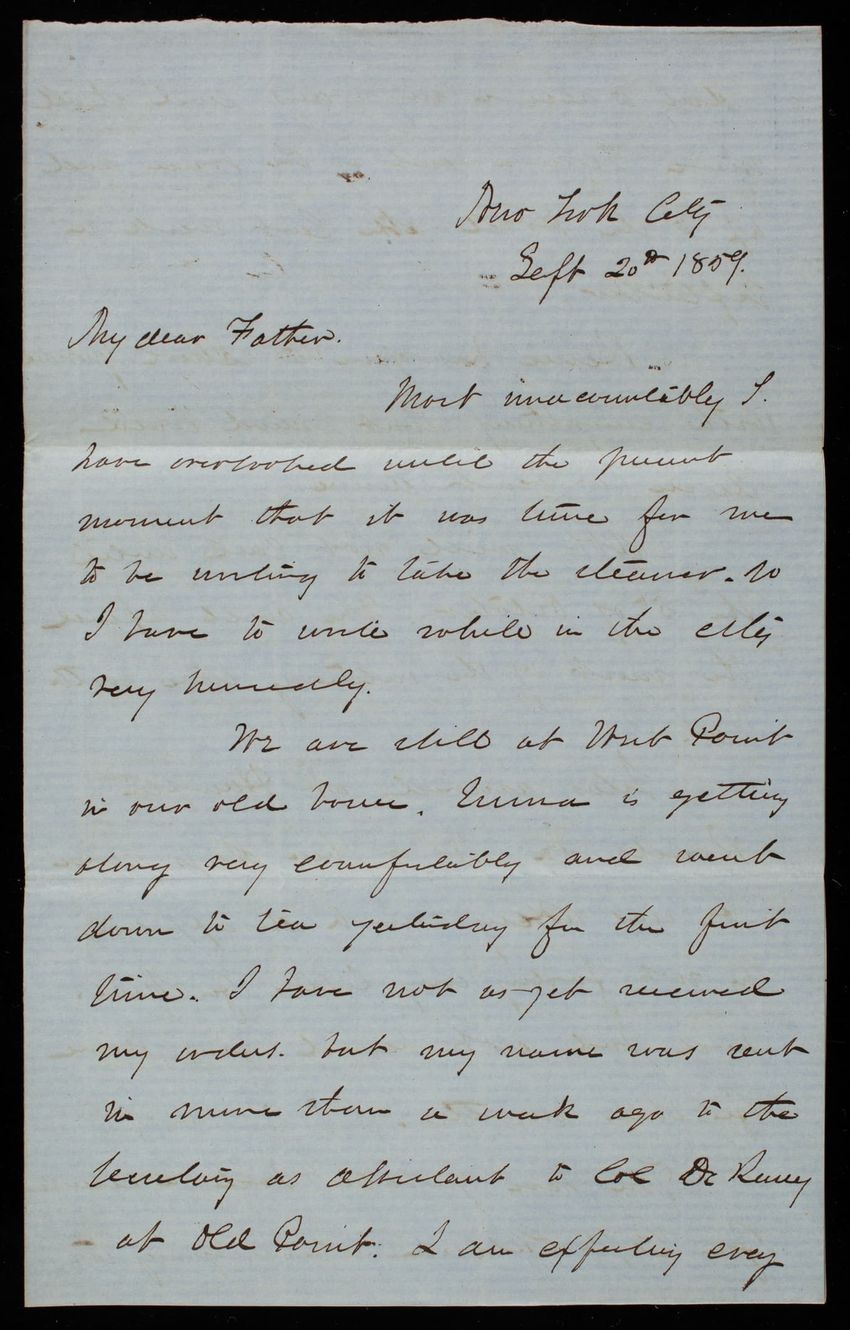 New York City
Sept 20th 1859.
My dear Father.
Most unaccountably I
have overlooked until the present
moment that it was time for me
to be writing to take the steamer. so
I have to write while in the city
very hurriedly.
We are still at West Point
in our old house. Emma is getting
along very comfortably and went
down to tea yesterday for the first
time. I have not as yet received
my orders. but my name was sent
in more than a week ago to the
Secretary as assistant to Col De Russy
at Old Point. I am expecting every